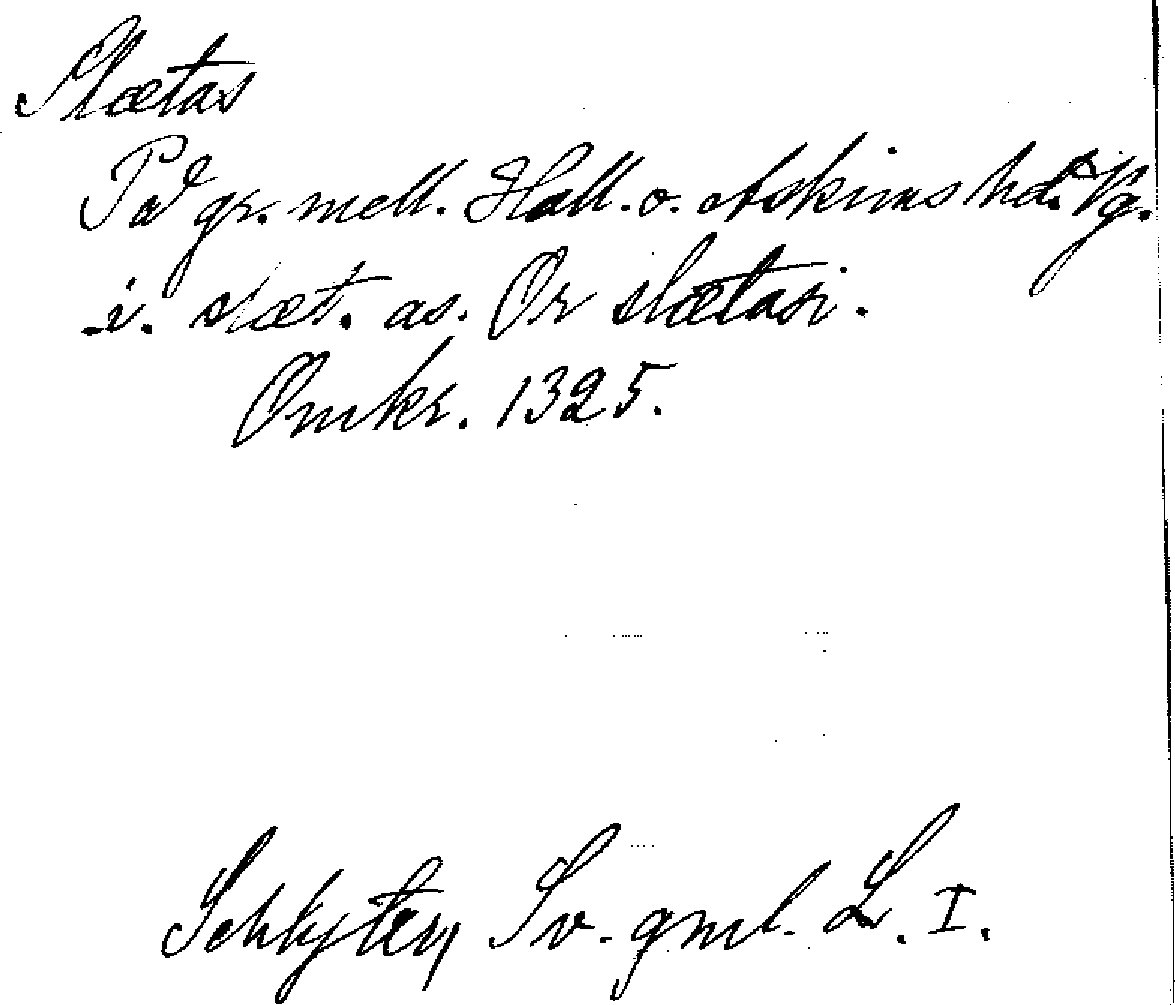 Slætas
På gr. mell. Hall. o. Askims hd. Vg.
i. slæt. as. Or slætasi.
Omkr. 1325.
Schlyter, Sv. gml. L. I.